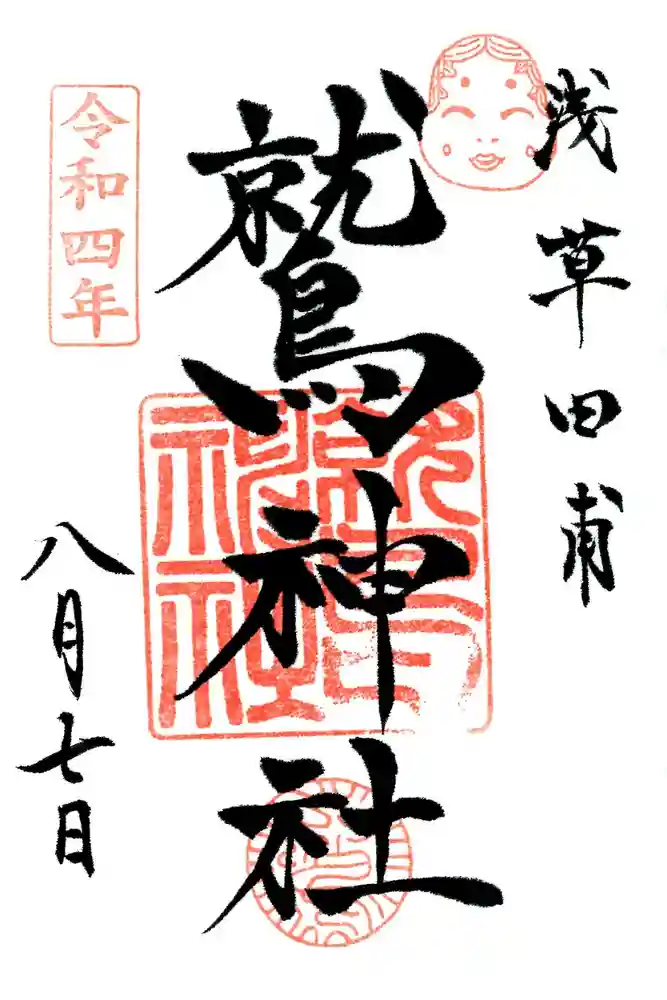 浅草田甫
鷲神社
鷲神社
令和四年
八月七日